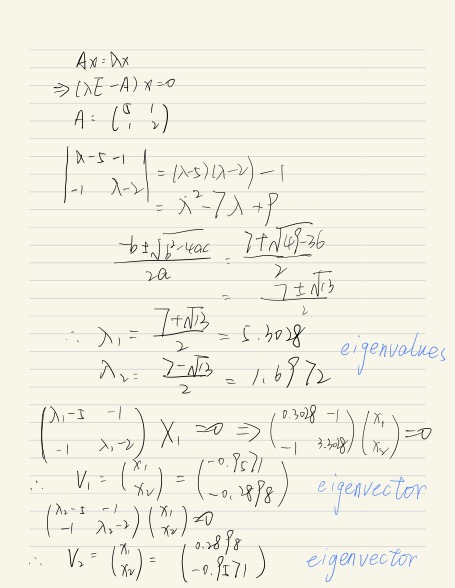 Ax = λx
⇒ (λE - A) x = 0
A = (5 1
1 2)
|λ-5 -1
-1 λ-2| = (λ-5)(λ-2) - 1
= λ² - 7λ + 9
(-b ± √(b² - 4ac)) / 2a = (7 ± √(49-36)) / 2
= (7 ± √13) / 2
∴ λ₁ = (7+√13) / 2 = 5.3028
eigenvalues
λ₂ = (7-√13) / 2 = 1.6972
(λ₁-5 -1
-1 λ₁-2) X₁ = 0 ⇒ (0.3028 -1
-1 3.3028) (x₁
x₂) = 0
∴ V₁ = (x₁
x₂) = (-0.9571
-0.2898) eigenvector
(λ₂-5 -1
-1 λ₂-2) (x₁
x₂) = 0
∴ V₂ = (x₁
x₂) = (0.2898
-0.9571) eigenvector